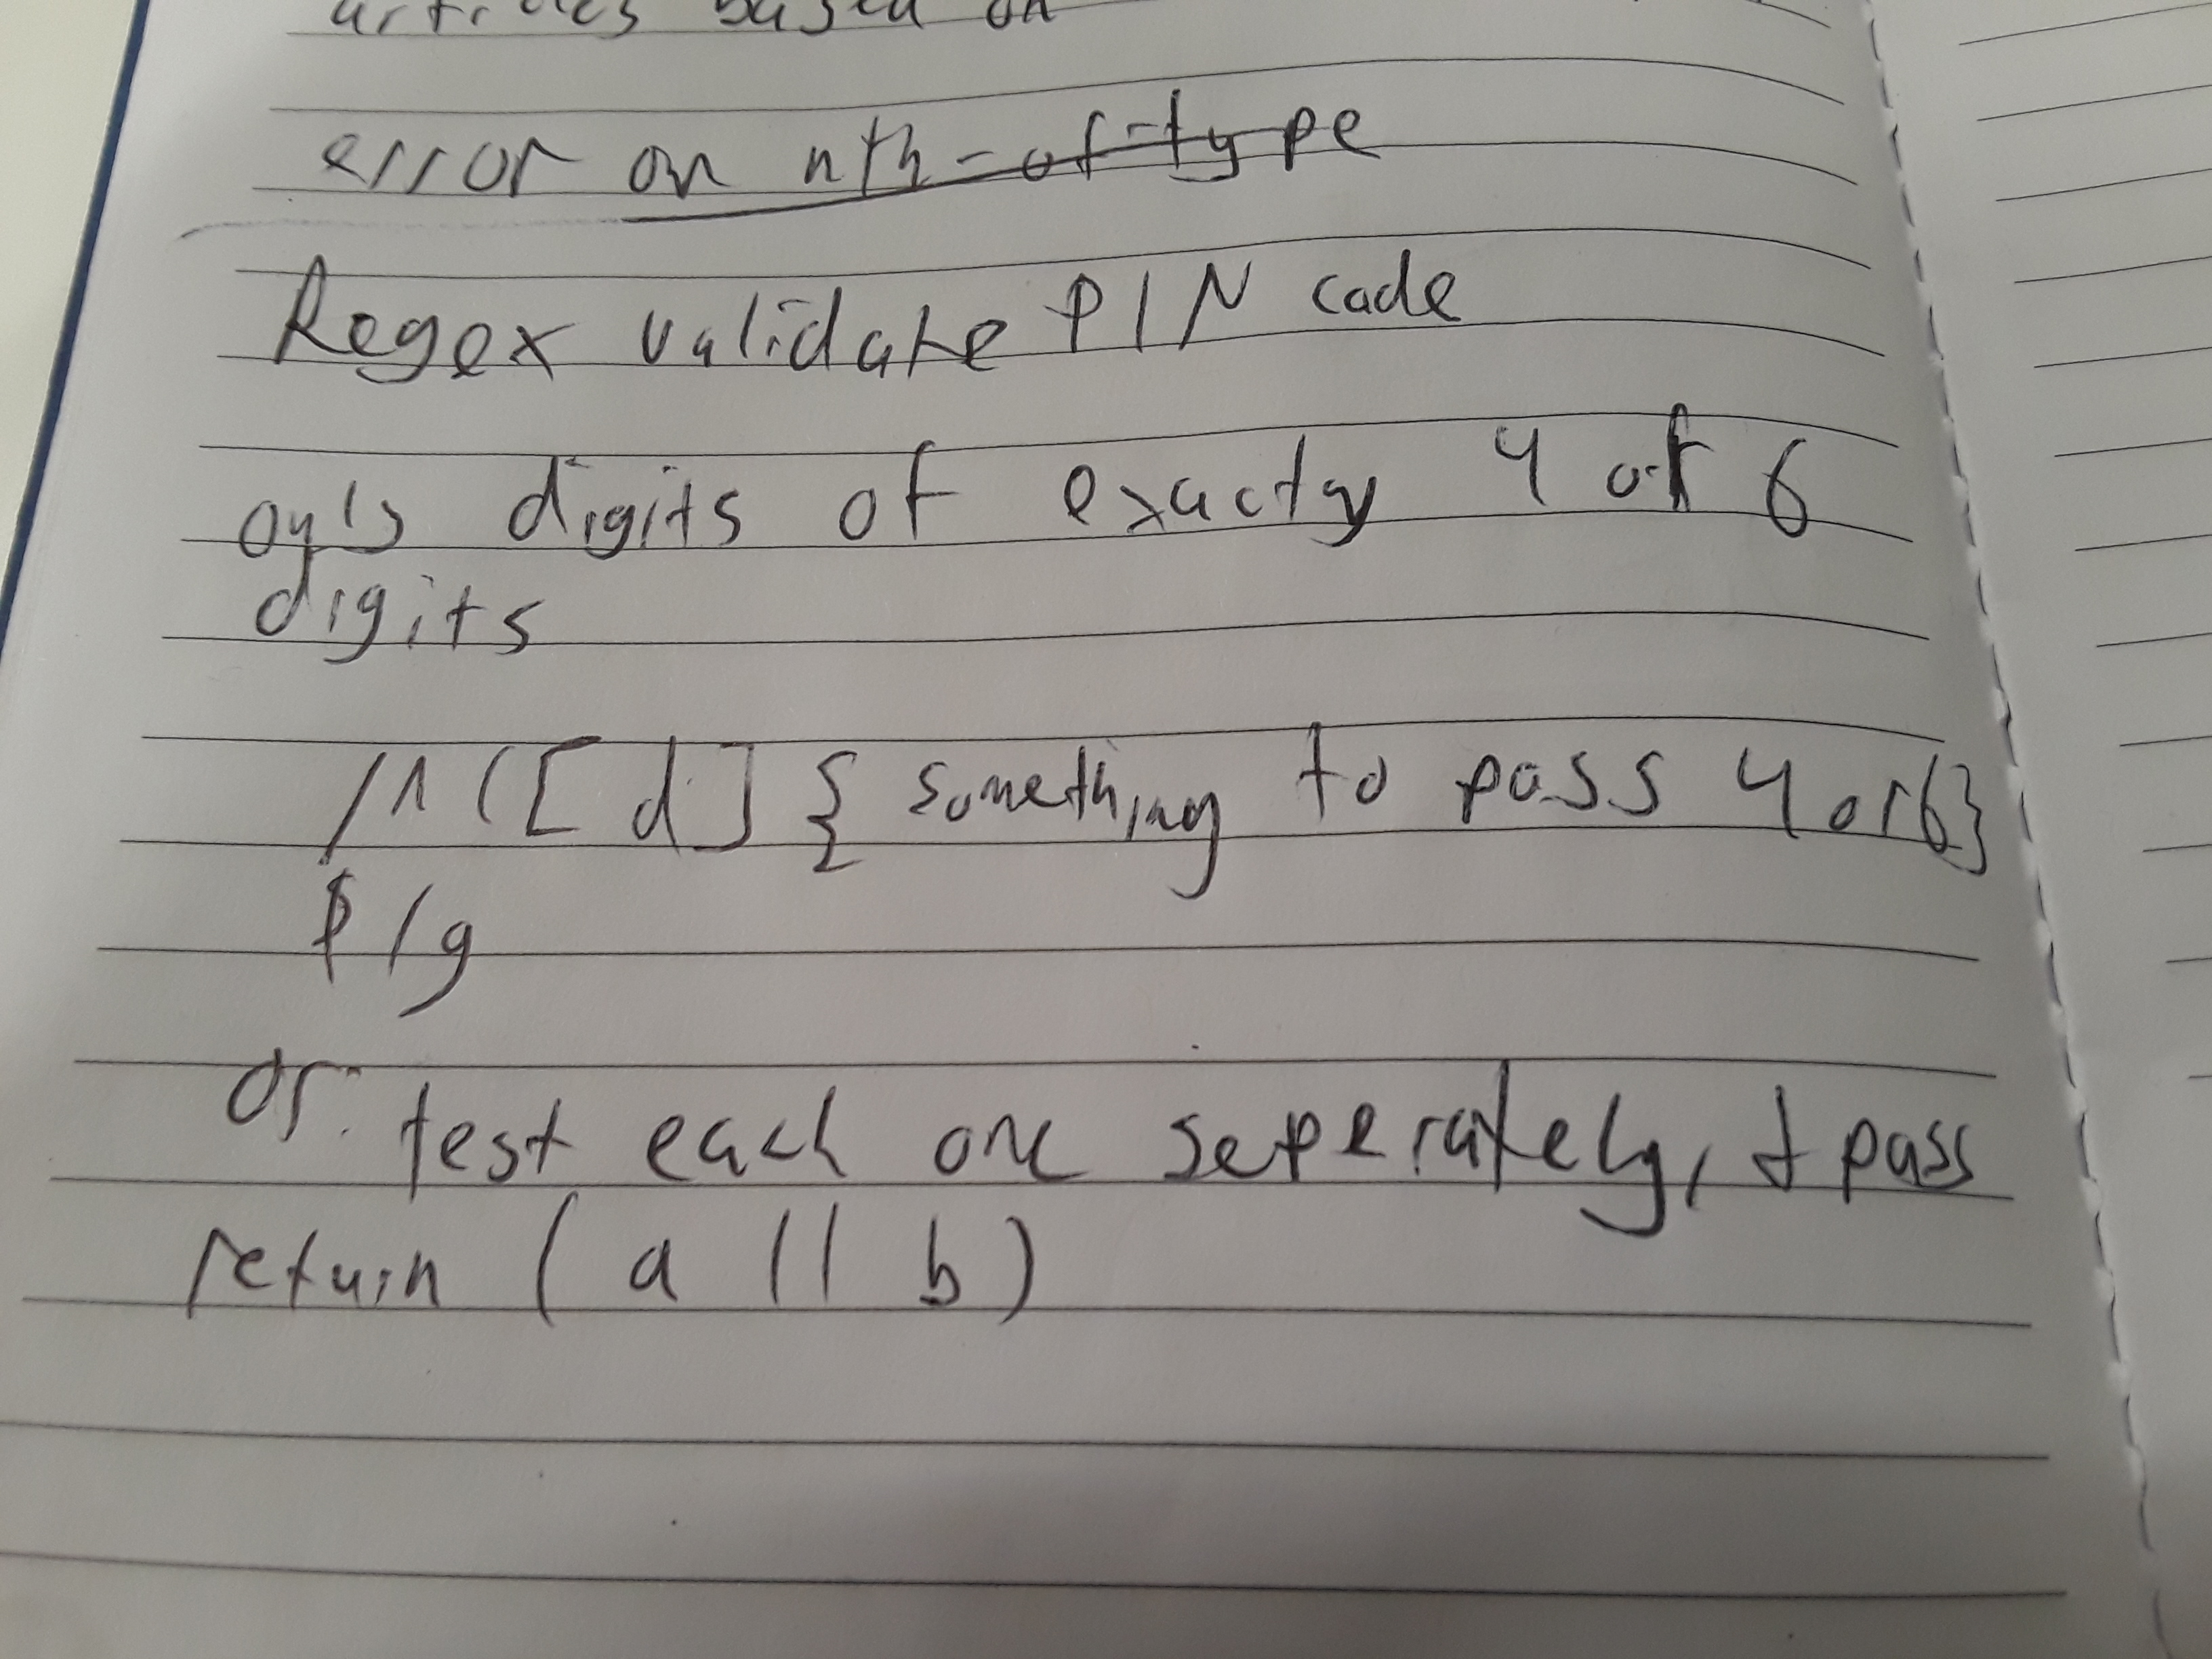 articles based on
error on nth-of-type
Regex validate PIN code
only digits of exacty 4 or 6
digits
/^([d]{something to pass 4 or6}
$/g
or: test each one seperately, + pass
return (a || b)